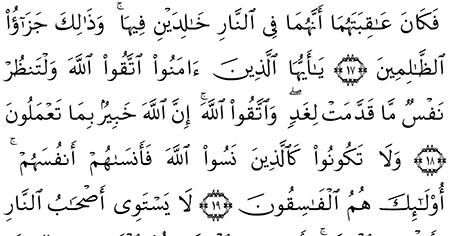 فَكَانَ عَـٰقِبَتَهُمَآ أَنَّهُمَا فِى ٱلنَّارِ خَـٰلِدَيْنِ فِيهَا ۚ وَذَٰلِكَ جَزَٰٓؤُا۟
ٱلظَّـٰلِمِينَ ﴿١٧﴾ يَـٰٓأَيُّهَا ٱلَّذِينَ ءَامَنُوا۟ ٱتَّقُوا۟ ٱللَّهَ وَلْتَنظُرْ
نَفْسٌ مَّا قَدَّمَتْ لِغَدٍ ۖ وَٱتَّقُوا۟ ٱللَّهَ ۚ إِنَّ ٱللَّهَ خَبِيرٌۢ بِمَا تَعْمَلُونَ
﴿١٨﴾ وَلَا تَكُونُوا۟ كَٱلَّذِينَ نَسُوا۟ ٱللَّهَ فَأَنسَىٰهُمْ أَنفُسَهُمْ ۚ
أُو۟لَـٰٓئِكَ هُمُ ٱلْفَـٰسِقُونَ ﴿١٩﴾ لَا يَسْتَوِىٓ أَصْحَـٰبُ ٱلنَّارِ